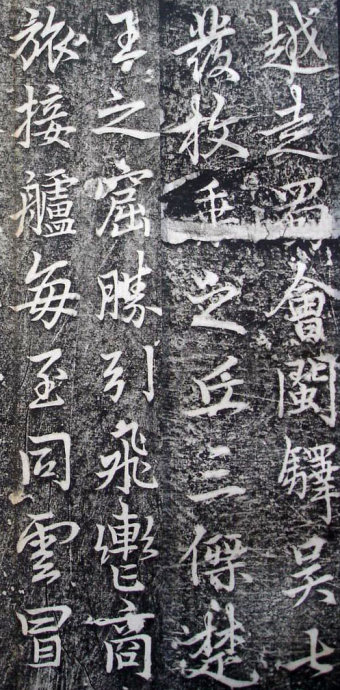 越走蜀會閩鐸吳七
發枚乘之丘三傑楚
王之窟勝引飛轡商
旅接艫每至同雲冒